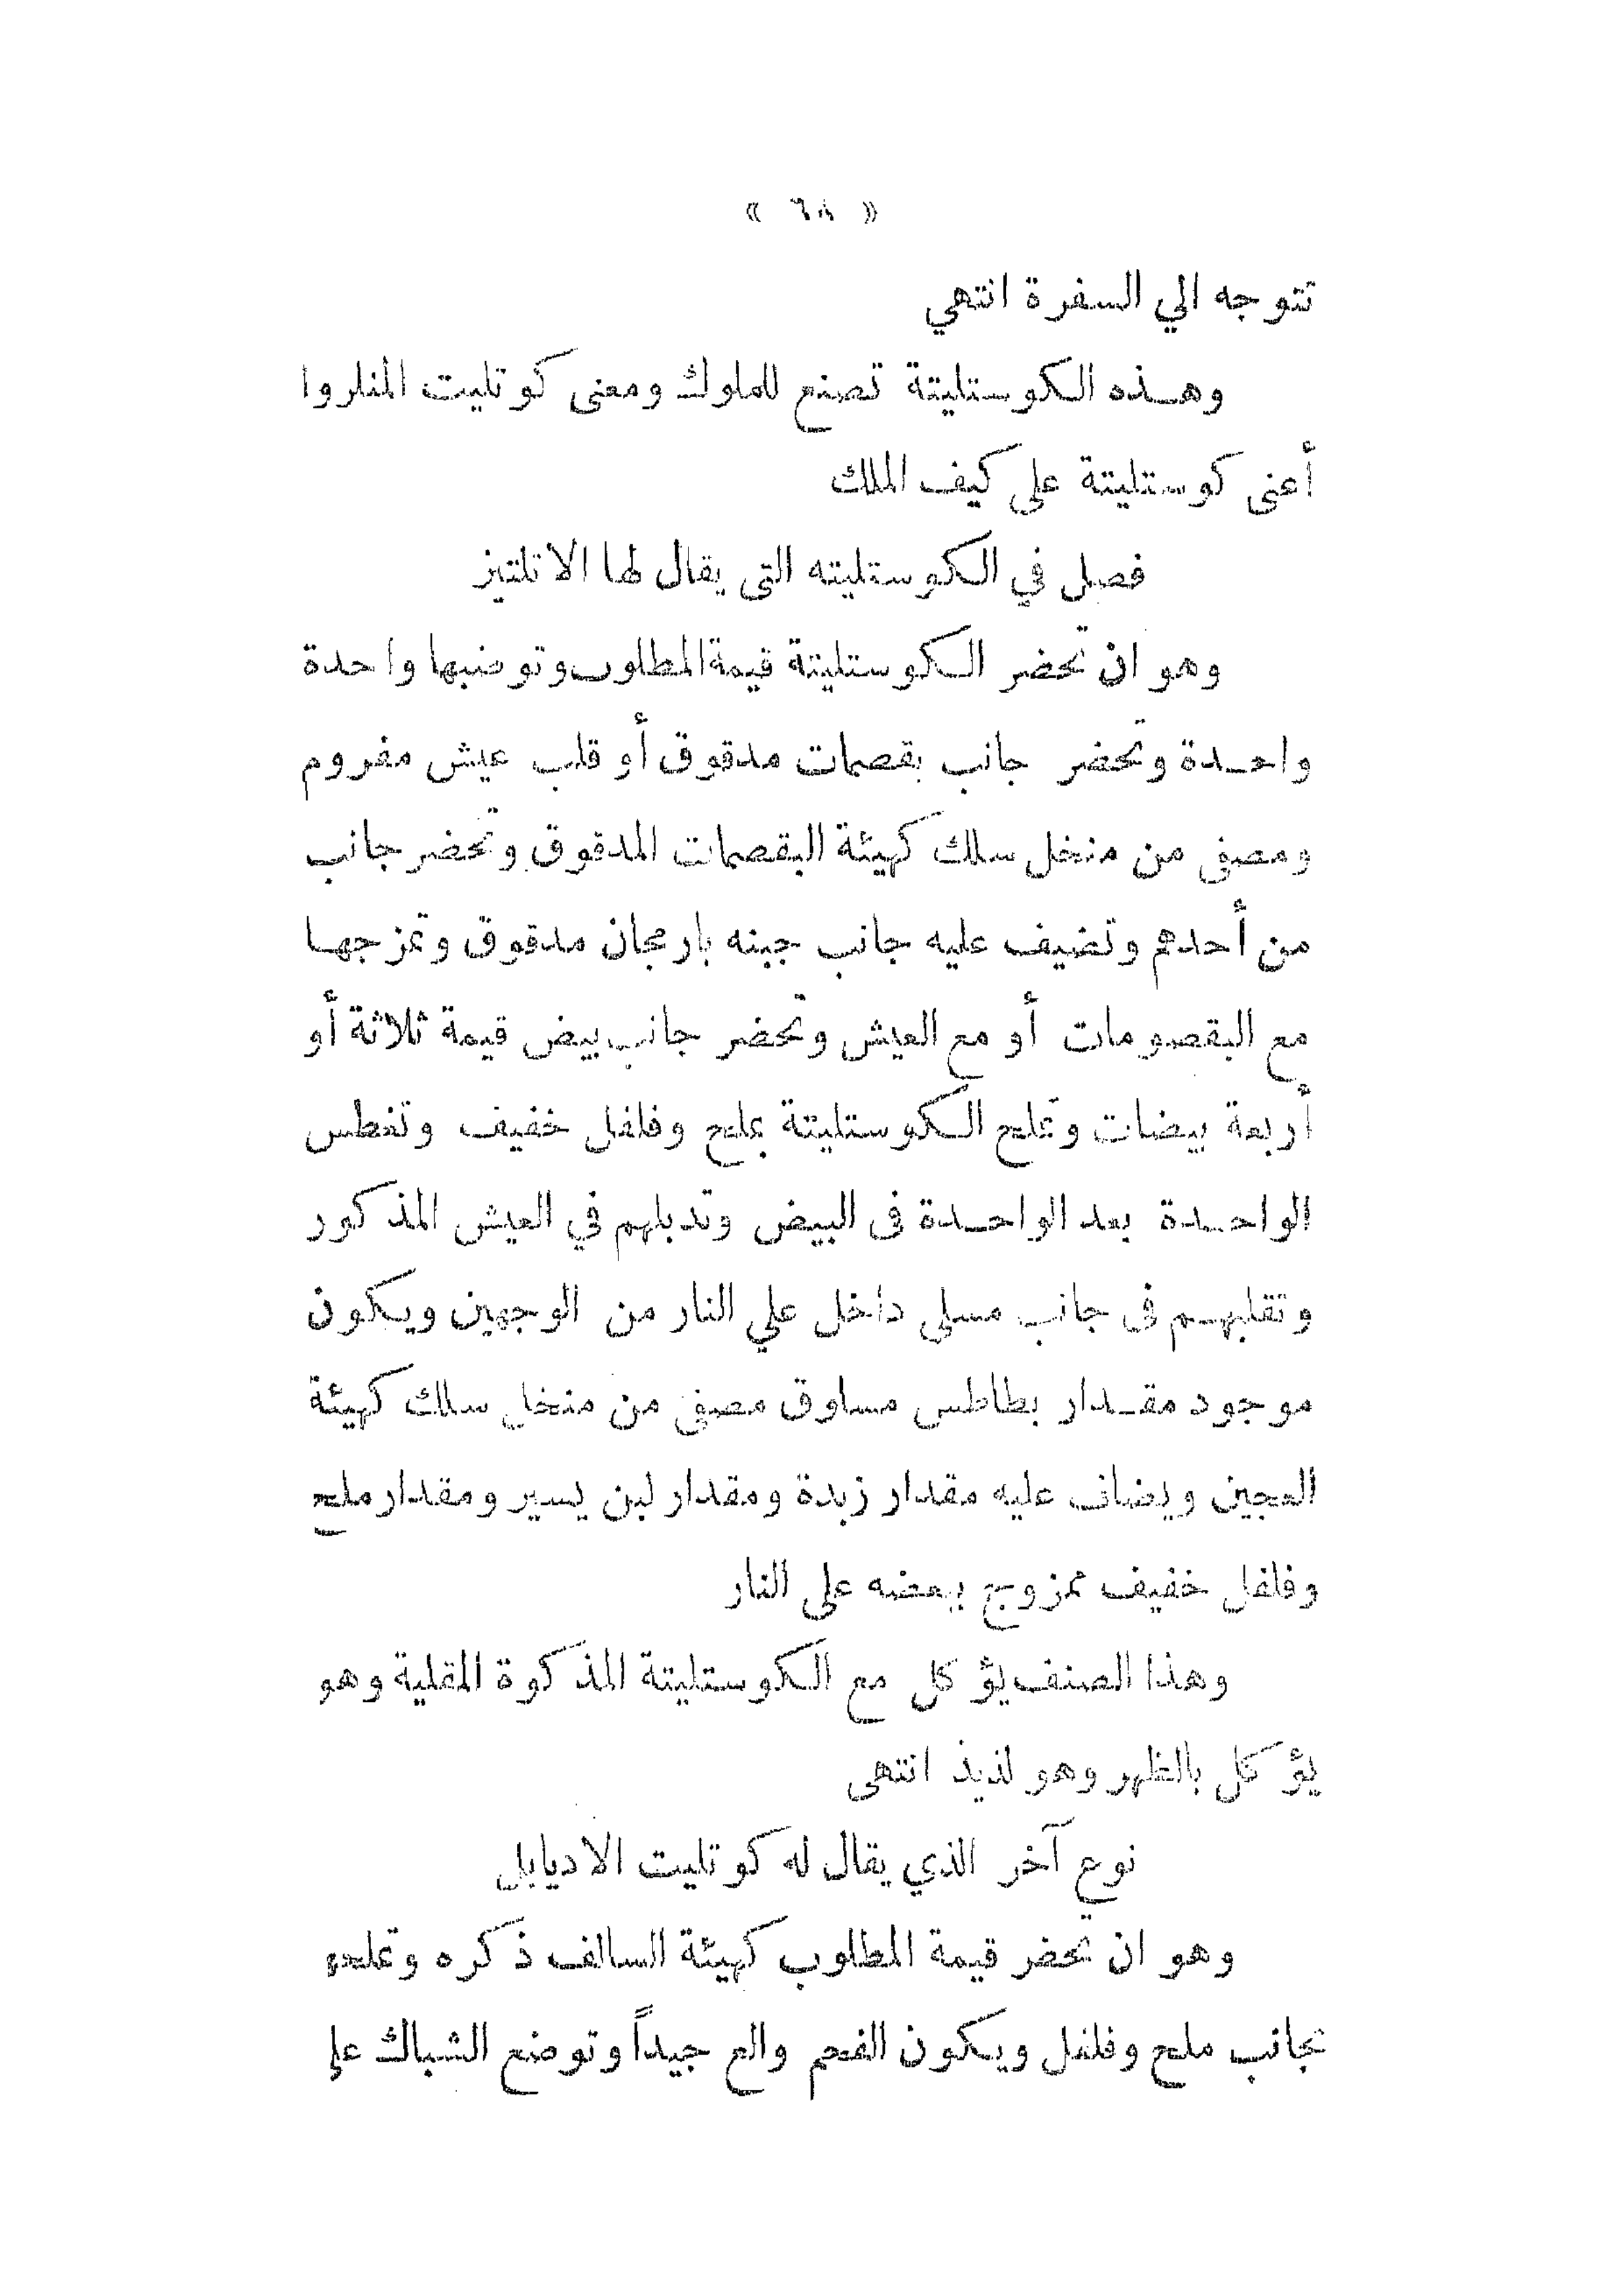 « ٦٨ »
تتوجه الي السفرة انتهي
وهذه الكوستليتة تصنع للملوك ومعنى كوتليت المنلروا
أعنى كوستليتة على كيف الملك
فصل في الكوستليته التى يقال لها الاتلتيز
وهو ان تحضر الكوستليتة قيمة المطلوب وتوضبها واحدة
واحدة وتحضر جانب بقصمات مدقوق أو قلب عيش مفروم
ومصفى من منخل سلك كهيئة البقصمات المدقوق وتحضر جانب
من أحدهم وتضيف عليه جانب جبنه بارمجان مدقوق وتمزجها
مع البقصومات أو مع العيش وتحضر جانب بيض قيمة ثلاثة أو
أربعة بيضات وتملح الكوستليتة بملح وفلفل خفيف وتغطس
الواحدة بعد الواحدة فى البيض وتدبلهم في العيش المذكور
وتقلبهم فى جانب مسلى داخل علي النار من الوجهين ويكون
موجود مقدار بطاطس مساوق مصفى من منخل سلك كهيئة
العجين ويضاف عليه مقدار زبدة ومقدار لبن يسير ومقدار ملح
وفلفل خفيف ممزوج ببعضه على النار
وهذا الصنف يؤكل مع الكوستليتة المذكوة المقلية وهو
يؤكل بالظهر وهو لذيذ انتهى
نوع آخر الذي يقال له كوتليت الاديابل
وهو ان تحضر قيمة المطلوب كهيئة السالف ذكره وتملحه
بجانب ملح وفلفل ويكون الفحم والع جيداً وتوضع الشباك على